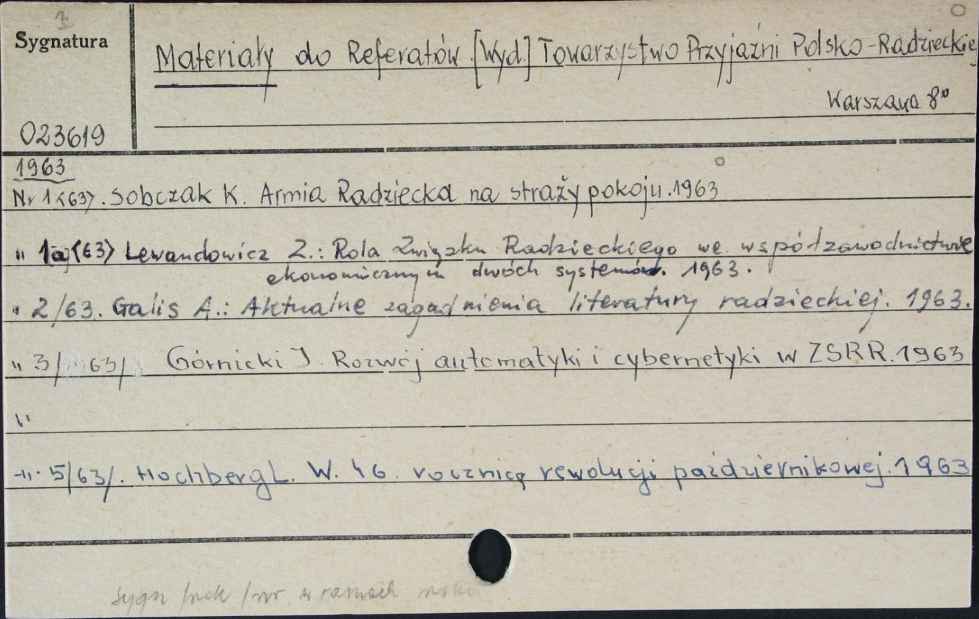 Sygnatura
Materiały do Referatów. [Wyd.] Towarzystwo Przyjaźni Polsko-Radzieckiej
Warszawa 8°
023619
1963
Nr 1<63>. Sobczak K. Armia Radziecka na straży pokoju. 1963
" 1a <63> Lewandowicz Z.: Rola Związku Radzieckiego we współzawodnictwie
ekonomicznym dwóch systemów. 1963.
" 2/63. Galis A.: Aktualne zagadnienia literatury radzieckiej. 1963.
" 3/63/ Górnicki J. Rozwój automatyki i cybernetyki w ZSRR. 1963
"
-"- 5/63/. Hochberg L. W. 46. rocznicę rewolucji październikowej. 1963
sygn /rok /nr w ramach